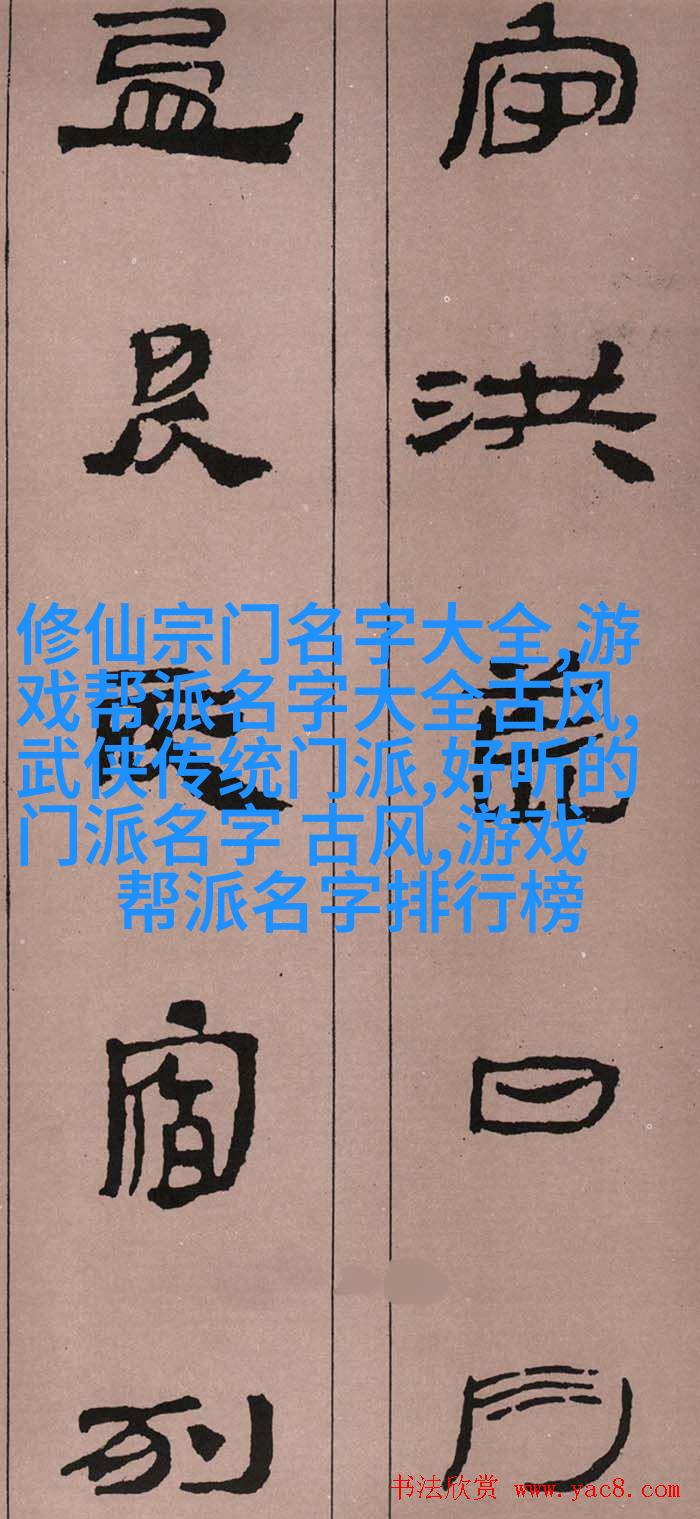 宇洪荒日月
盈昃辰宿列
修仙宗门名字大全,游
戏帮派名字大全古风,
武侠传统门派,好听的
门派名字 古风,游戏
帮派名字排行榜
书法欣赏 www.yac8.com